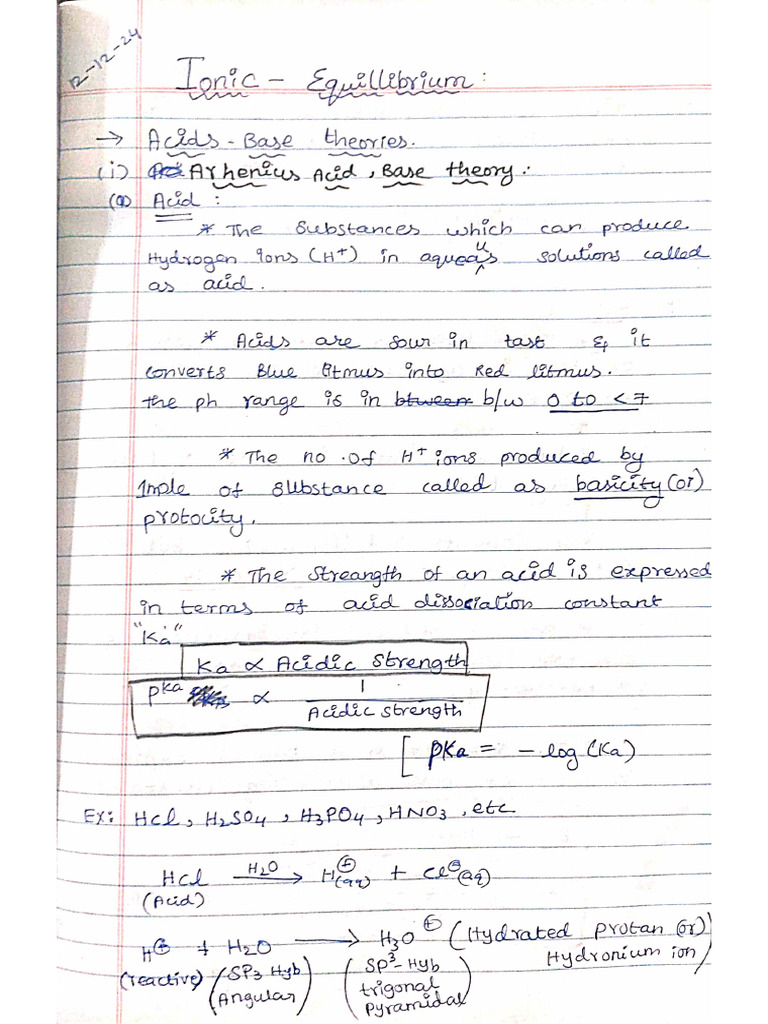 12-12-24
Ionic - Equillibrium :
→ Acids - Base theories.
(i) Arhenius Acid, Base theory :
(a) Acid :
* The substances which can produce
Hydrogen ions (H⁺) in aqueous solutions called
as acid.
* Acids are sour in tast & it
converts Blue litmus into Red litmus.
the ph range is in btween b/w 0 to < 7
* The no. of H⁺ ions produced by
1mole of substance called as basicity (or)
protocity.
* The streangth of an acid is expressed
in terms of acid dissociation constant
"Ka"
Ka ∝ Acidic strength
pKa ∝ 1 / Acidic strength
[ pKa = - log (Ka)
Ex: Hcl, H₂SO₄, H₃PO₄, HNO₃, etc
Hcl —H₂O→ H⊕(aq) + Cl⊖(aq)
(Acid)
H⊕ + H₂O ⟶ H₃O⊕ (Hydrated protan (or)
Hydronium ion)
(reactive) (SP3 Hyb Angular) (SP³-Hyb trigonal pyramidal)